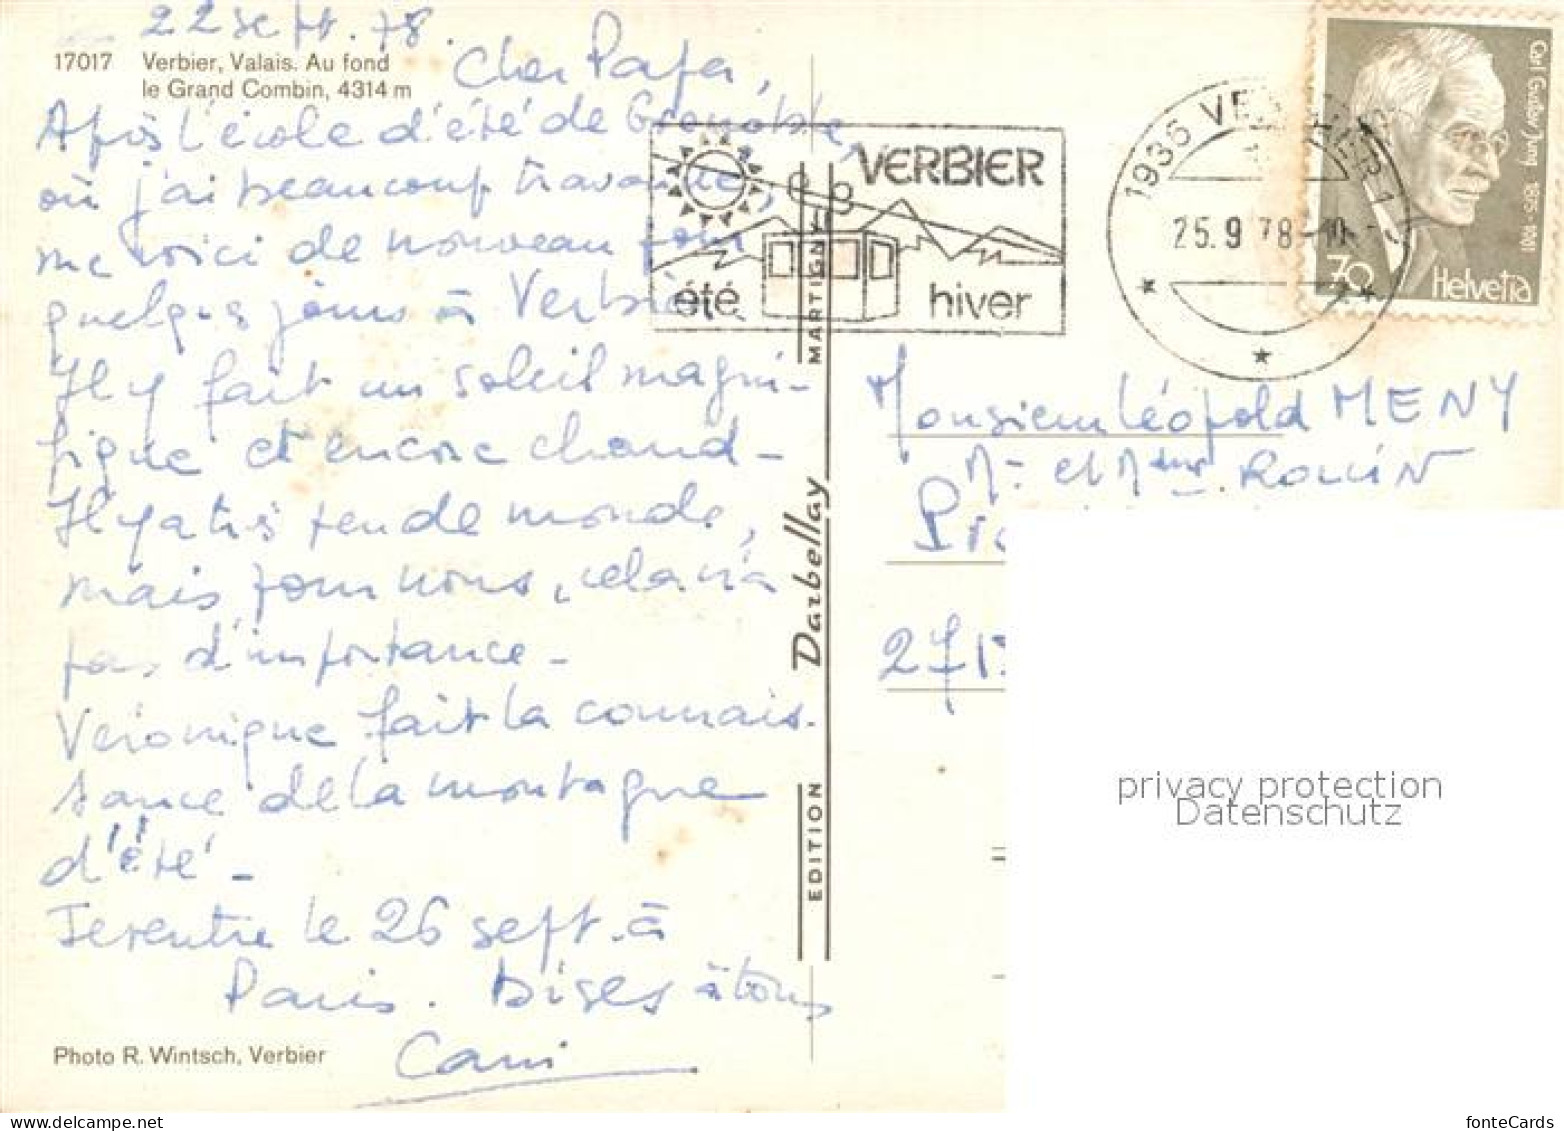 22 sept. 78.
17017 Verbier, Valais. Au fond
le Grand Combin, 4314 m
Cher Papa,
Après l'école d'été de Grenoble,
où j'ai beaucoup travaillé,
me voici de nouveau pour
quelques jours à Verbier.
Il y fait un soleil magni-
fique et encore chaud -
Il y a très peu de monde,
mais pour nous, cela n'a
pas d'importance -
Véronique fait la connais-
sance de la montagne
d'été -
Je rentre le 26 sept. à
Paris. Bises à tous
Photo R. Wintsch, Verbier
EDITION Darbellay MARTIGNY
VERBIER
été hiver
1936 VERBIER
25.9.78-10
Carl Gustav Jung 1875-1961
70 Helvetia
Monsieur Léopold MENY
M. et Mme ROLLIN
271
privacy protection
Datenschutz
fonteCards